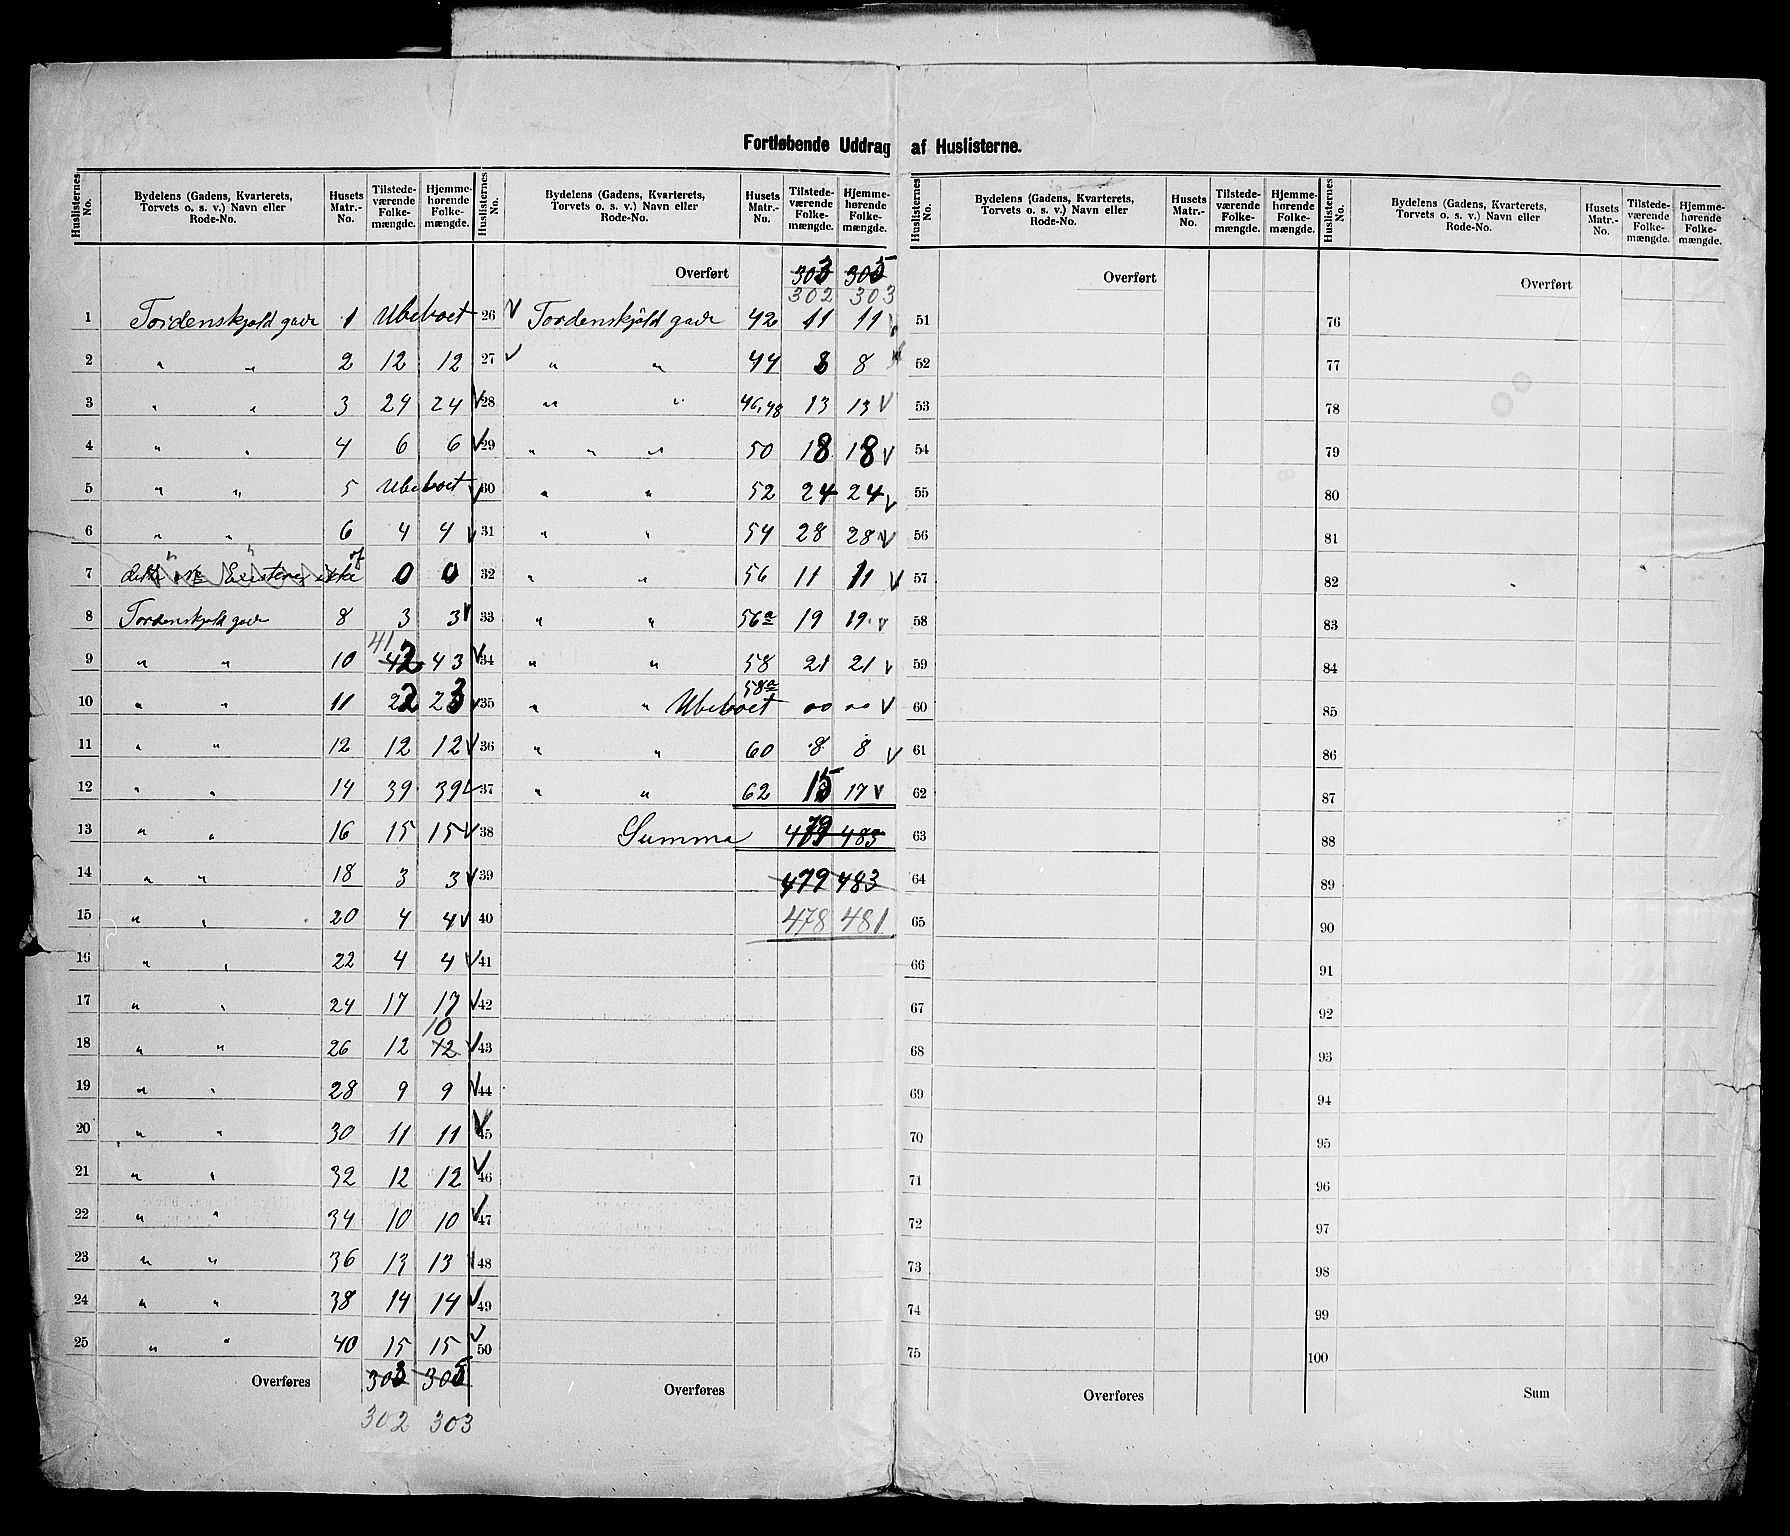 Fortløbende Uddrag af Huslisterne.
Huslisternes No. Bydelens (Gadens, Kvarterets, Torvets o. s. v.) Navn eller Rode-No. Husets Matr.-No. Tilstedeværende Folkemængde. Hjemmehørende Folkemængde.
1 Tordenskjold gade 1 Ubeboet
2 " " 2 12 12
3 " " 3 24 24 V
4 " " 4 6 6 V
5 " " 5 Ubeboet V
6 " " 6 4 4 V
7 dette No Existerer ikke 7 0 0
8 Tordenskjold gade 8 3 3 V
9 " " 10 41 42 43 V
10 " " 11 22 23 V
11 " " 12 12 12 V
12 " " 14 39 39 V
13 " " 16 15 15 V
14 " " 18 3 3 V
15 " " 20 4 4 V
16 " " 22 4 4 V
17 " " 24 17 17 V
18 " " 26 12 12 10 V
19 " " 28 9 9 V
20 " " 30 11 11 V
21 " " 32 12 12 V
22 " " 34 10 10 V
23 " " 36 13 13 V
24 " " 38 14 14 V
25 " " 40 15 15 V
Overføres 303 305
302 303
Huslisternes No. Bydelens (Gadens, Kvarterets, Torvets o. s. v.) Navn eller Rode-No. Husets Matr.-No. Tilstedeværende Folkemængde. Hjemmehørende Folkemængde.
Overført 303 305
302 303
26 V Tordenskjöld gade 42 11 11 V
27 V " " 44 8 8 V
28 " " 46,48 13 13 V
29 " " " 50 18 18 V
30 " " 52 24 24 V
31 " " 54 28 28 V
32 " " 56 11 11 V
33 " " 56a 19 19 V
34 " " 58 21 21 V
35 " " Ubeboet 58a 00 00 V
36 " " 60 8 8 V
37 " " 62 15 17 V
38 Summa 479 483
39 479 483
40 478 481
41
42
43
44
45
46
47
48
49
50
Overføres
Huslisternes No. Bydelens (Gadens, Kvarterets, Torvets o. s. v.) Navn eller Rode-No. Husets Matr.-No. Tilstedeværende Folkemængde. Hjemmehørende Folkemængde.
Overført
51
52
53
54
55
56
57
58
59
60
61
62
63
64
65
66
67
68
69
70
71
72
73
74
75
Overføres
Huslisternes No. Bydelens (Gadens, Kvarterets, Torvets o. s. v.) Navn eller Rode-No. Husets Matr.-No. Tilstedeværende Folkemængde. Hjemmehørende Folkemængde.
Overført
76
77
78
79
80
81
82
83
84
85
86
87
88
89
90
91
92
93
94
95
96
97
98
99
100
Sum